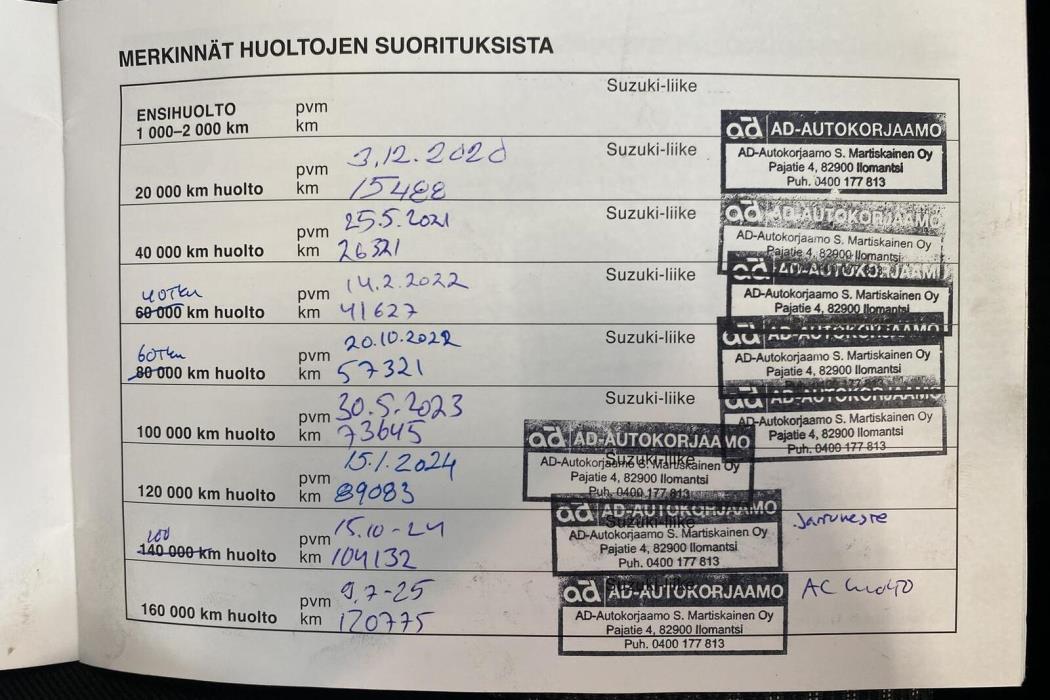 MERKINNÄT HUOLTOJEN SUORITUKSISTA
ENSIHUOLTO pvm Suzuki-liike
1 000–2 000 km km
ad AD-AUTOKORJAAMO
AD-Autokorjaamo S. Martiskainen Oy
Pajatie 4, 82900 Ilomantsi
Puh. 0400 177 813
pvm 3.12.2020 Suzuki-liike
20 000 km huolto km 15488
pvm 25.5.2021 Suzuki-liike
40 000 km huolto km 26321
ad AD-AUTOKORJAAMO
AD-Autokorjaamo S. Martiskainen Oy
Pajatie 4, 82900 Ilomantsi
40Tkm pvm 14.2.2022 Suzuki-liike
60 000 km huolto km 41627
ad AD-AUTOKORJAAMO
AD-Autokorjaamo S. Martiskainen Oy
Pajatie 4, 82900 Ilomantsi
60Tkm pvm 20.10.2022 Suzuki-liike
80 000 km huolto km 57321
ad AD-AUTOKORJAAMO
AD-Autokorjaamo S. Martiskainen Oy
Pajatie 4, 82900 Ilomantsi
Puh. 0400 177 813
pvm 30.5.2023 Suzuki-liike
100 000 km huolto km 73645
ad AD-AUTOKORJAAMO
AD-Autokorjaamo S. Martiskainen Oy
Pajatie 4, 82900 Ilomantsi
Puh. 0400 177 813
pvm 15.1.2024 Suzuki-liike
120 000 km huolto km 89083
ad AD-AUTOKORJAAMO
AD-Autokorjaamo S. Martiskainen Oy
Pajatie 4, 82900 Ilomantsi
Puh. 0400 177 813
100 pvm 15.10-24 Suzuki-liike Jarruneste
140 000 km huolto km 104132
ad AD-AUTOKORJAAMO
AD-Autokorjaamo S. Martiskainen Oy
Pajatie 4, 82900 Ilomantsi
Puh. 0400 177 813
pvm 9.7-25 Suzuki-liike AC huolto
160 000 km huolto km 120775
ad AD-AUTOKORJAAMO
AD-Autokorjaamo S. Martiskainen Oy
Pajatie 4, 82900 Ilomantsi
Puh. 0400 177 813